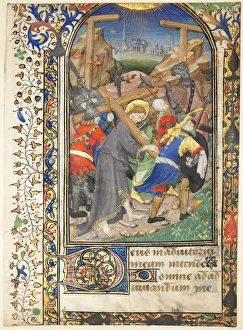 Deus in adiutoriu
meum intende
Domine ad ad
iuuandum me